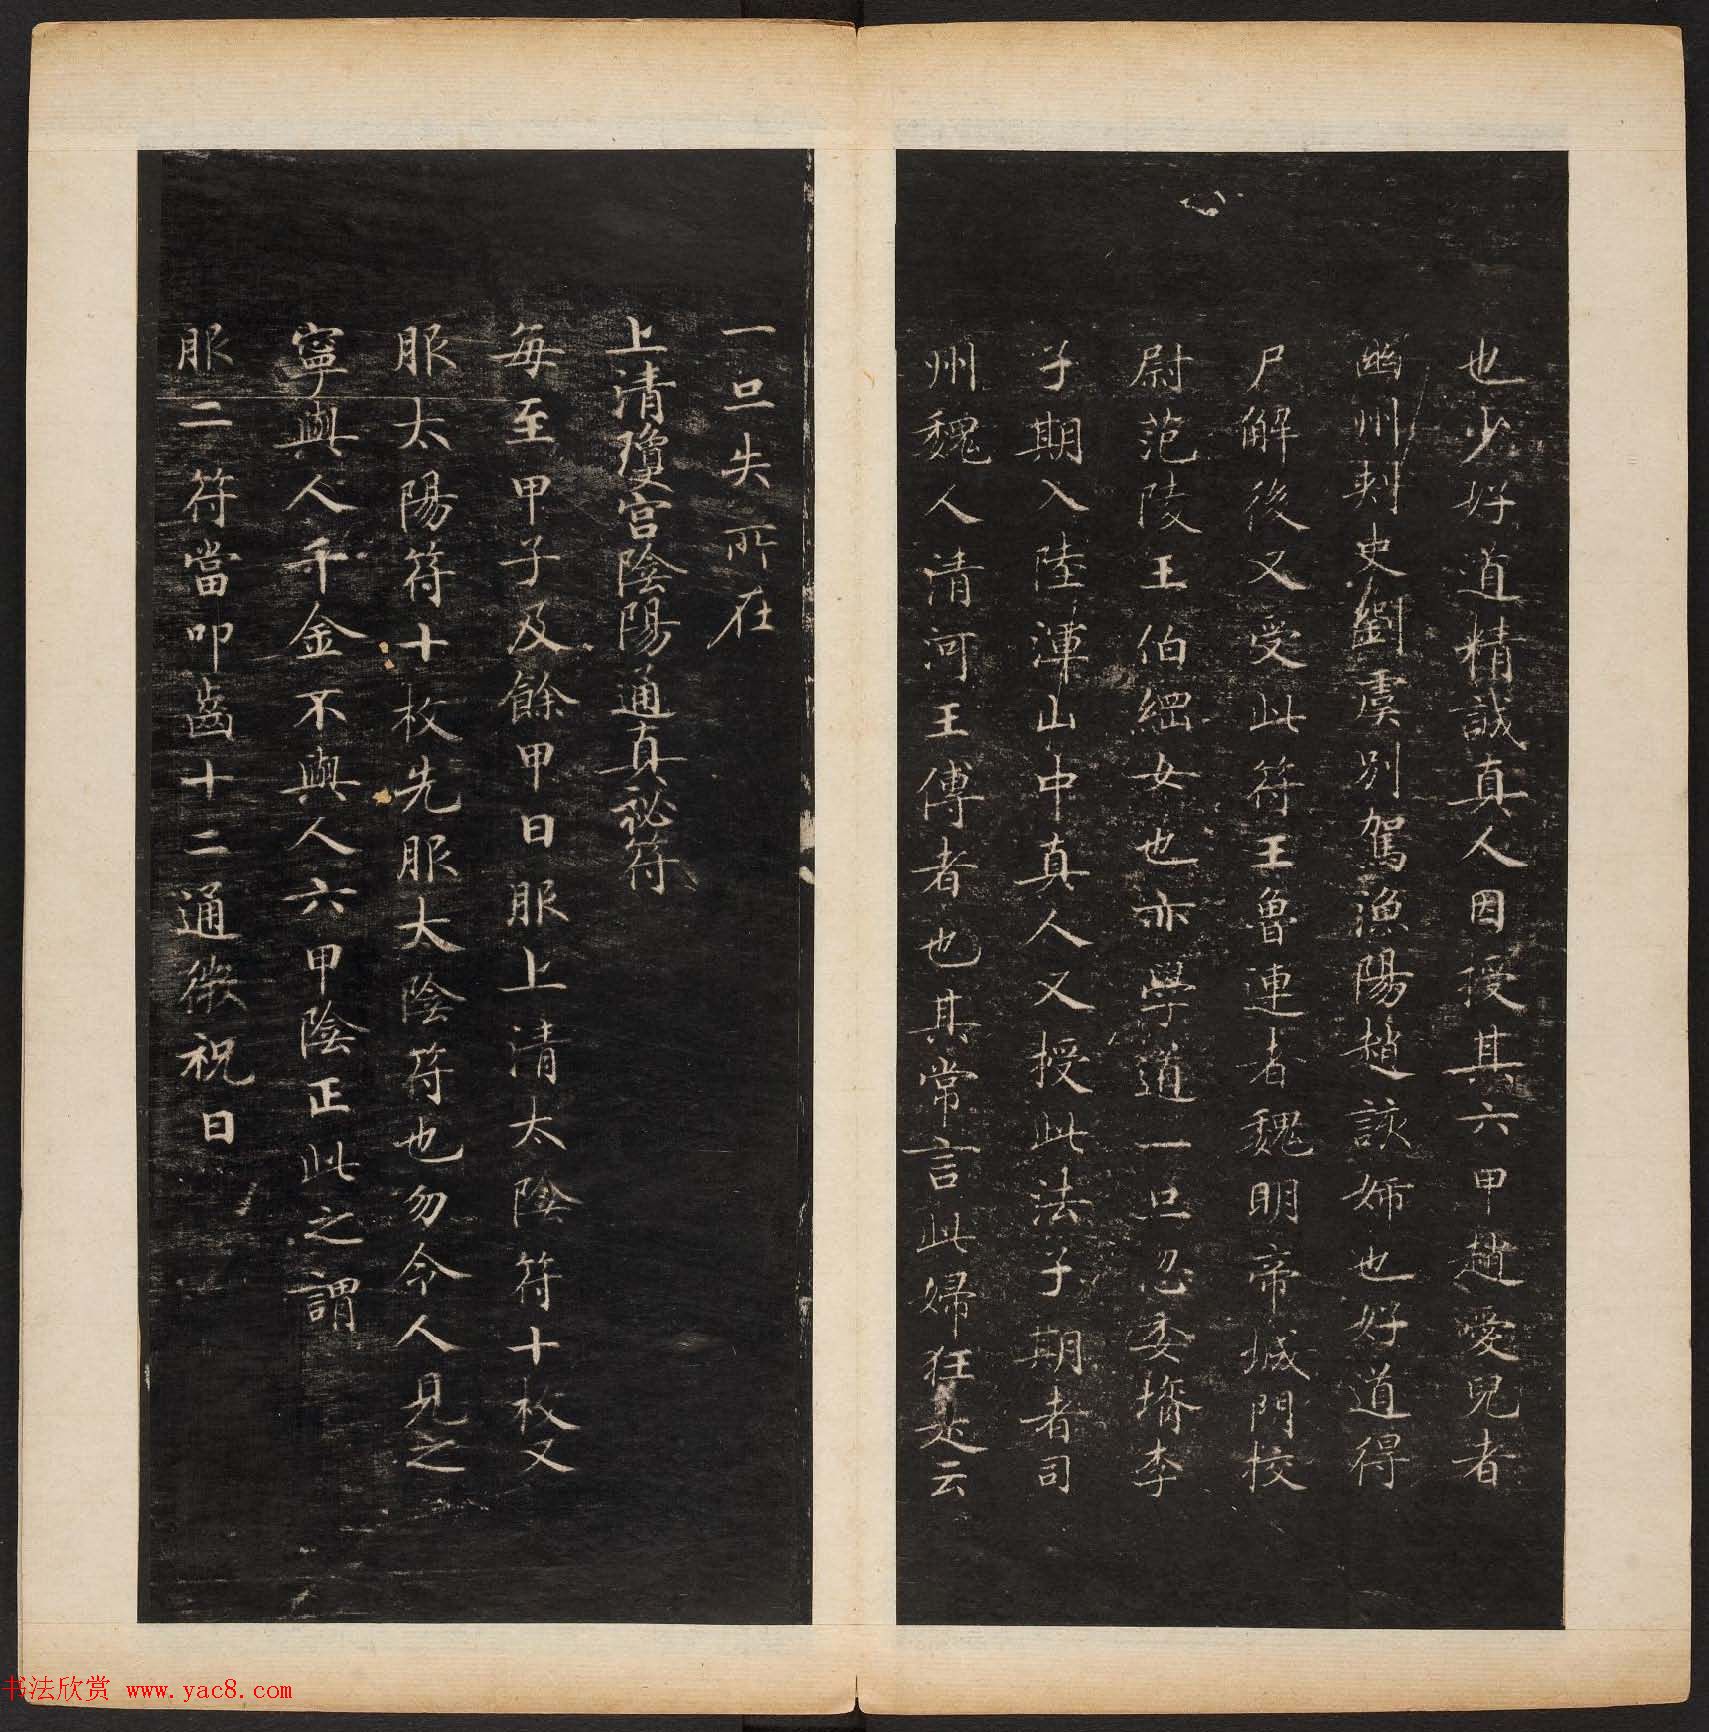 也少好道精誠真人因授其六甲趙愛兒者
幽州刺史劉虞別駕漁陽趙該姊也好道得
尸解後又受此符王魯連者魏明帝城門校
尉范陵王伯綱女也亦學道一旦忽委壻李
子期入陸渾山中真人又授此法子期者司
州魏人清河王傅者也其常言此婦狂走云
一旦失所在
上清瓊宮陰陽通真祕符
每至甲子及餘甲日服上清太陰符十枚又
服太陽符十枚先服太陰符也勿令人見之
寧與人千金不與人六甲陰正此之謂
服二符當叩齒十二通微祝曰
书法欣赏 www.yac8.com